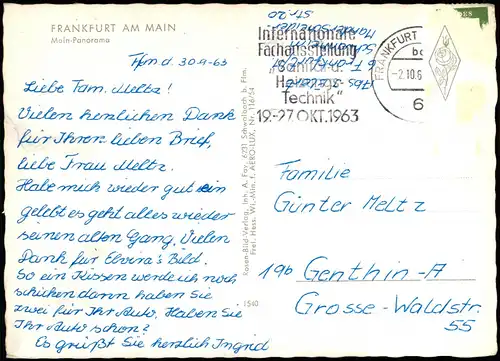 FRANKFURT AM MAIN
Main-Panorama
Ffm d. 30.9.63
Liebe Fam. Meltz!
Vielen herzlichen Dank
für Ihren lieben Brief,
liebe Frau Meltz.
Habe mich wieder gut ein
gelebt es geht alles wieder
seinen alten Gang. Vielen
Dank für Elvira's Bild.
So ein Kissen werde ich noch
schicken dann haben Sie
zwei für Ihr Auto. Haben Sie
Ihr Auto schon?
Es grüßt Sie herzlich Ingrid
Rosen-Bild-Verlag, Inh. A. Fay, 6231 Schwalbach b. Ffm.
Freig. Hess. Wi.-Min. f. AERO-LUX, Nr. 716/54
1540
Internationale
Fachausstellung
"Sanitär- u.
Heizungs-
Technik"
19.-27. OKT. 1963
FRANKFURT
bc
-2.10.6
6
Str. 20
6 Frankfurt
Familie
Günter Meltz
19b Genthin-A
Grosse-Waldstr.
55